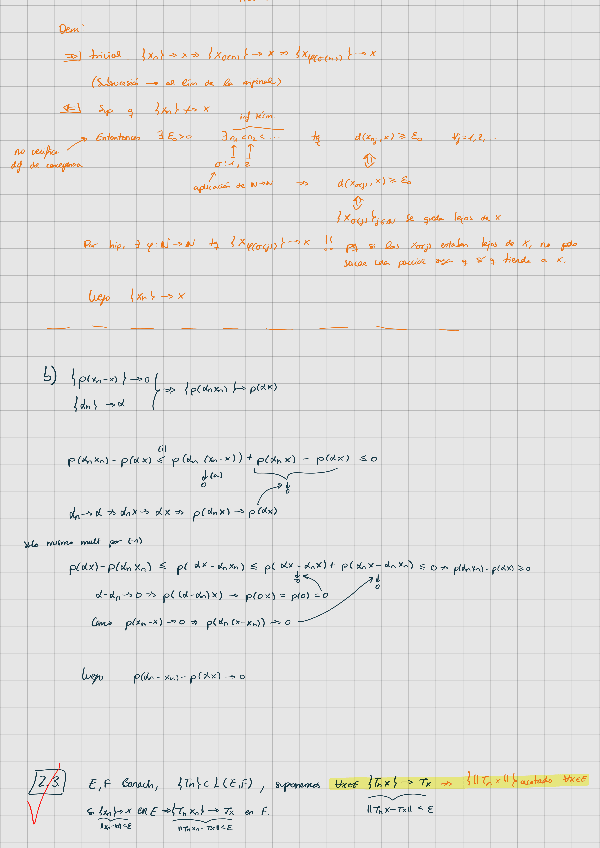 Dem:
⇒] trivial {xₙ} → x ⇒ {x_σ(n)} → x ⇒ {x_φ(σ(n))} → x
(Subsucesión → al lím de la original)
⇐] Sup q {xₙ} ↛ x
inf térm
no verifica def de convergencia → Entonces ∃ ε₀>0 ∃ n₁<n₂<... tq d(x_nⱼ, x) ≥ ε₀ ∀j=1,2,...
σ: 1, 2
aplicación de ℕ→ℕ ⇒ d(x_σ(j), x) ≥ ε₀
{x_σ(j)}_{j∈ℕ} se queda lejos de x
Por hip. ∃ φ: ℕ→ℕ tq {x_φ(σ(j))} → x !! pq si los x_σ(j) estaban lejos de x, no puedo
sacar una parcial q tiende a x.
Luego {xₙ} → x
b) {p(xₙ-x)} → 0
{αₙ} → α } ⇒ {p(αₙxₙ)} → p(αx)
p(αₙxₙ) - p(αx) ≤ (i) p(αₙ(xₙ-x)) + p(αₙx) - p(αx) ≤ 0
↓(a) 0 ↓ 0
αₙ→α ⇒ αₙx → αx ⇒ p(αₙx) → p(αx)
mismo mult por (-1)
p(αx) - p(αₙxₙ) ≤ p(αx - αₙxₙ) ≤ p(αx - αₙx) + p(αₙx - αₙxₙ) ≤ 0 ⇒ p(αₙxₙ) - p(αx) ≥ 0
↓ 0 ↓ 0
α-αₙ → 0 ⇒ p((α-αₙ)x) → p(0x) = p(0) = 0
Como p(xₙ-x) → 0 ⇒ p(αₙ(x-xₙ)) → 0
Luego p(αₙ - xₙ) - p(αx) → 0
2.3. E, F Banach, {Tₙ} ⊂ L(E,F), suponemos ∀x∈E {Tₙx} → Tx ⇒ {||Tₙx||} acotado ∀x∈E
||Tₙx - Tx|| < ε
Si {xₙ} → x en E ⇒ {Tₙxₙ} → Tx en F.
||xₙ-x|| < ε ||Tₙxₙ - Tx|| < ε